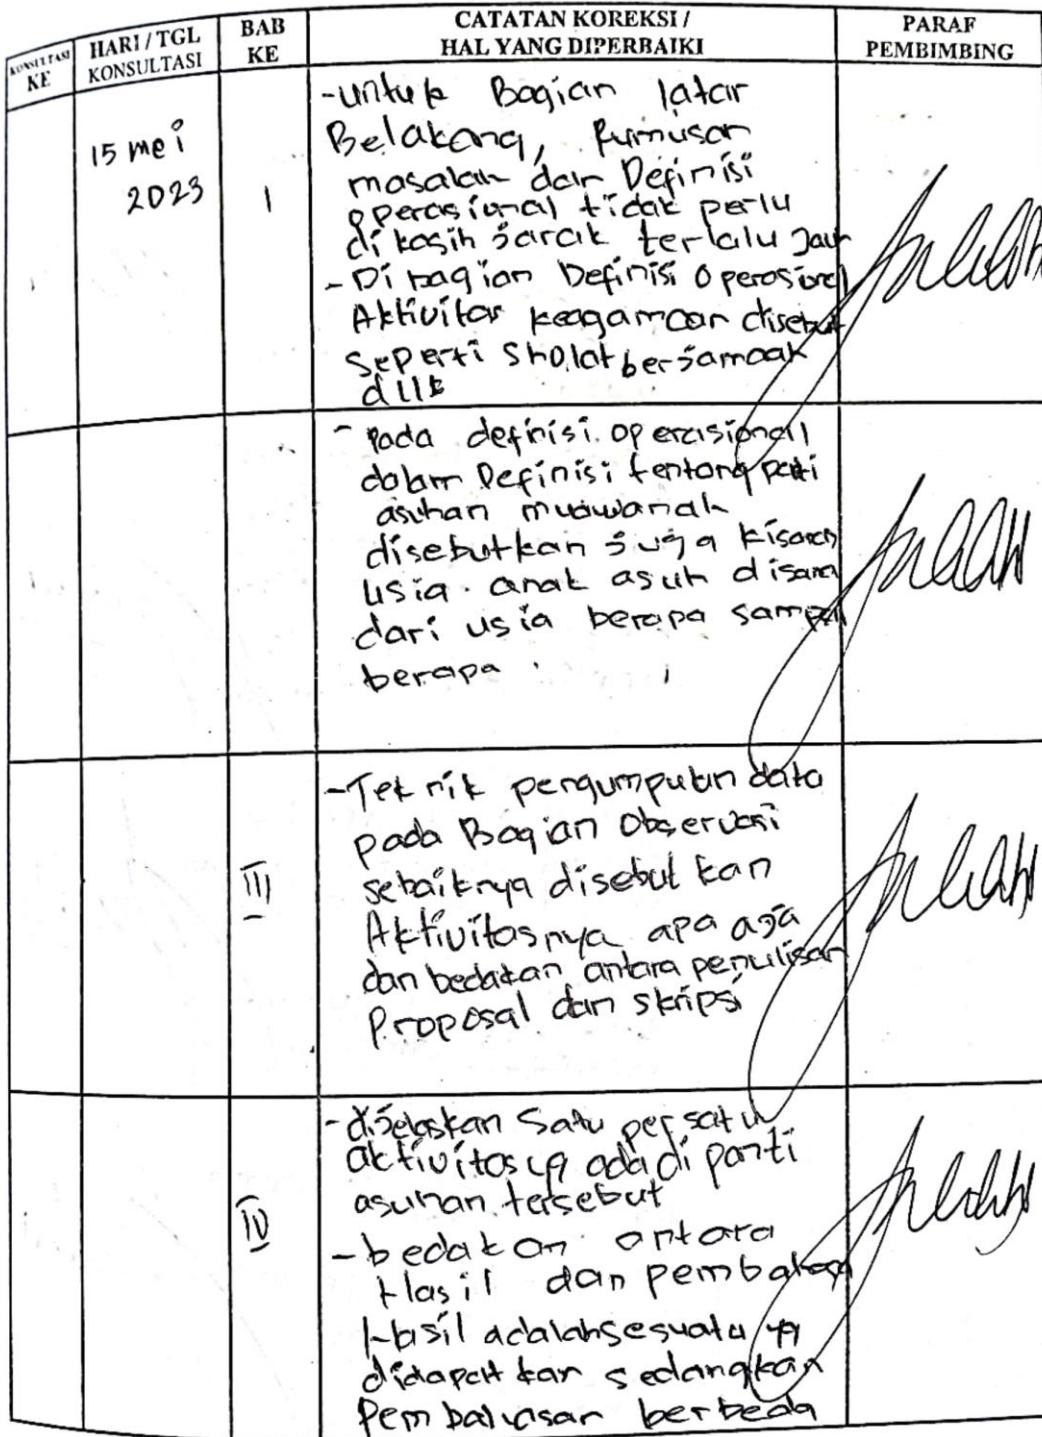 KONSULTASI KE
HARI / TGL KONSULTASI
BAB KE
CATATAN KOREKSI / HAL YANG DIPERBAIKI
PARAF PEMBIMBING
15 mei
2023
1
- untuk Bagian latar
Belakang, Rumusan
masalah dan Definisi
operasional tidak perlu
di kasih jarak terlalu jauh
- Di bagian Definisi Operasional
Aktivitas keagamaan disebut
seperti sholat berjamaah
dllk
- pada definisi operasional
dalam Definisi tentang panti
asuhan muawanah
disebutkan juga kisaran
usia anak asuh disana
dari usia berapa sampai
berapa
III
- Teknik pengumpulan data
pada Bagian Observasi
sebaiknya disebutkan
Aktivitasnya apa aja
dan bedakan antara penulisan
Proposal dan skripsi
IV
- dijelaskan Satu persatu
aktivitas yg ada di panti
asuhan tersebut
- bedakan antara
Hasil dan pembahasan
Hasil adalah sesuatu yg
didapatkan sedangkan
Pembahasan berbeda